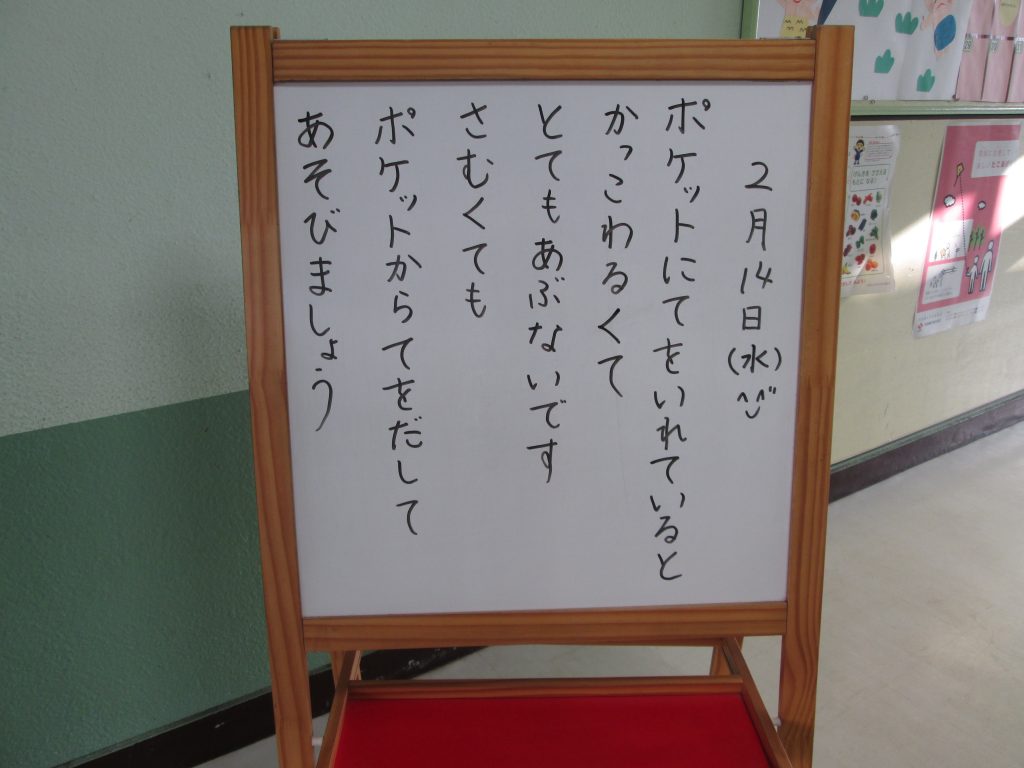 2月14日(水)
ポケットにてをいれていると
かっこわるくて
とてもあぶないです
さむくても
ポケットからてをだして
あそびましょう